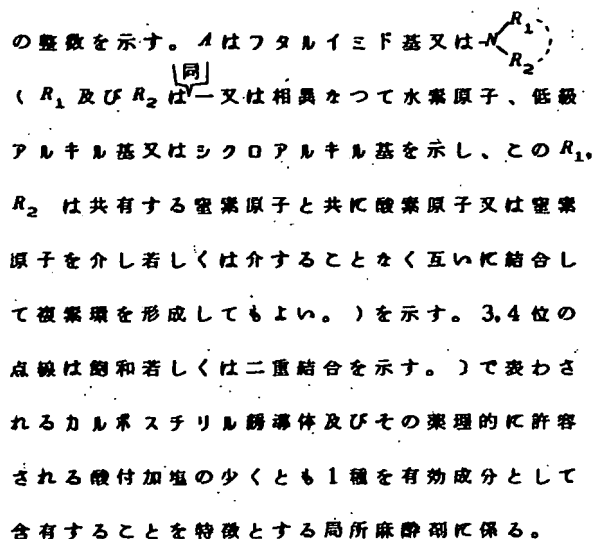 の整数を示す。Aはフタルイミド基又は-N R1 R2
(R1及びR2は同一又は相異なつて水素原子、低級
アルキル基又はシクロアルキル基を示し、このR1,
R2 は共有する窒素原子と共に酸素原子又は窒素
原子を介し若しくは介することなく互いに結合し
て複素環を形成してもよい。)を示す。3,4位の
点線は飽和若しくは二重結合を示す。〕で表わさ
れるカルボスチリル誘導体及びその薬理的に許容
される酸付加塩の少くとも1種を有効成分として
含有することを特徴とする局所麻酔剤に係る。